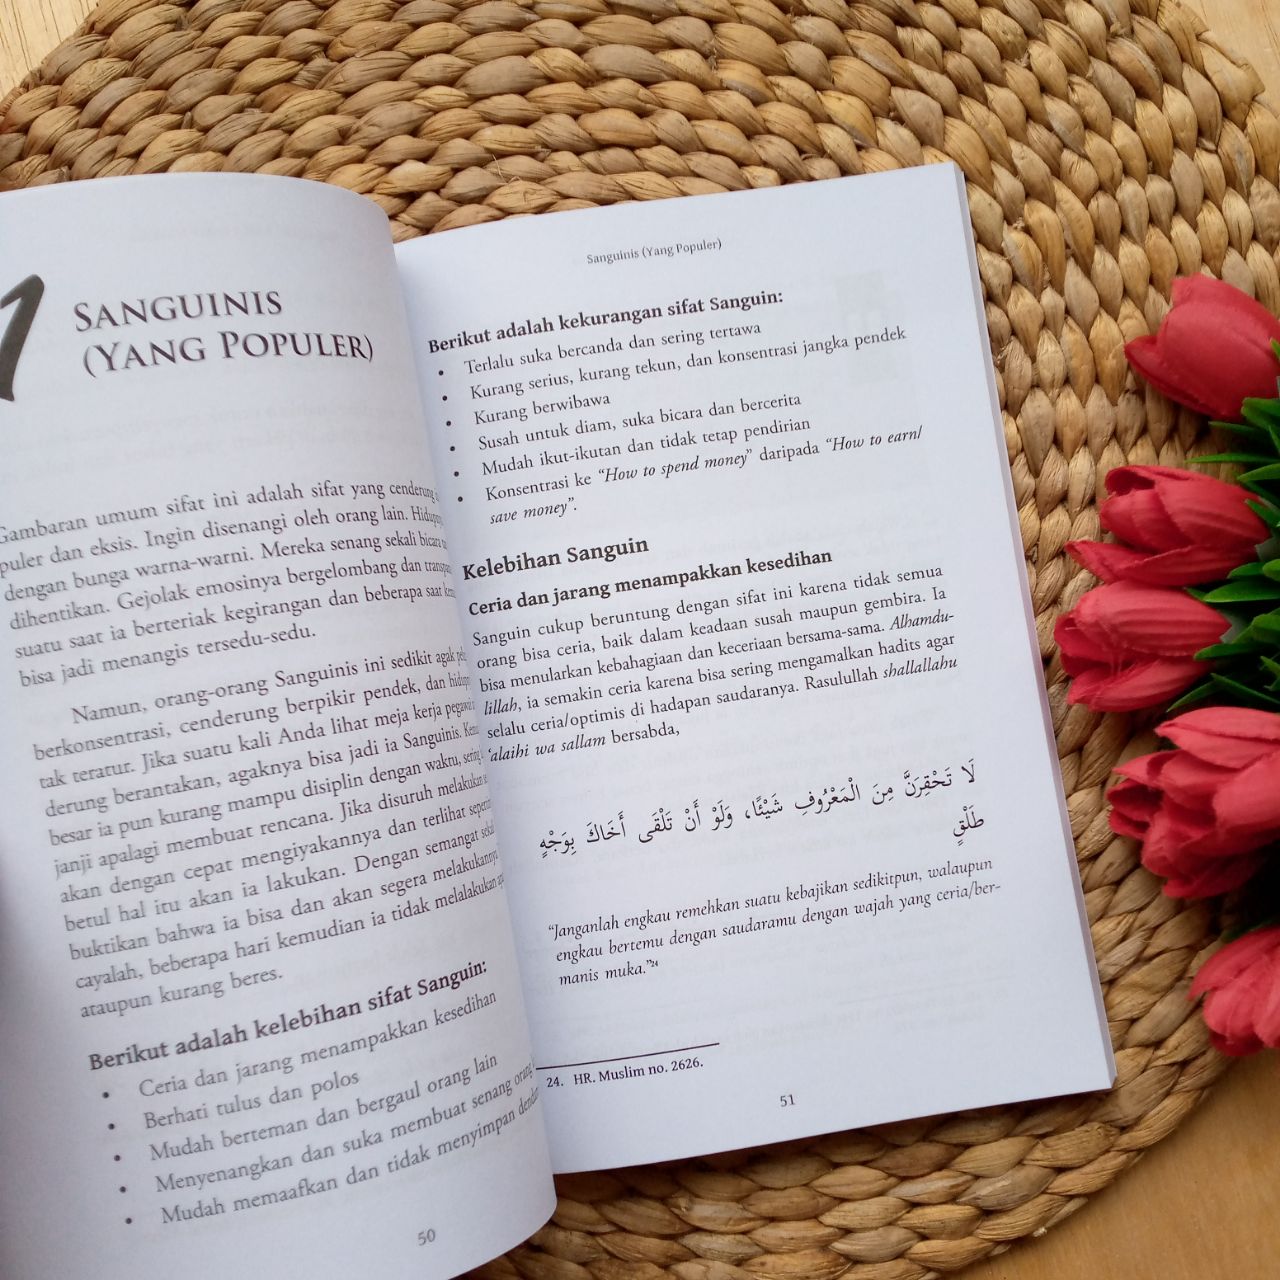 1
SANGUINIS
(YANG POPULER)
Gambaran umum sifat ini adalah sifat yang cenderung
puler dan eksis. Ingin disenangi oleh orang lain.
dengan bunga warna-warni. Mereka senang sekali bicara
dihentikan. Gejolak emosinya bergelombang dan
suatu saat ia berteriak kegirangan dan beberapa saat
bisa jadi menangis tersedu-sedu.
Namun, orang-orang Sanguinis ini sedikit agak
berkonsentrasi, cenderung berpikir pendek, dan
tak teratur. Jika suatu kali Anda lihat meja kerja
derung berantakan, agaknya bisa jadi ia Sanguinis.
besar ia pun kurang mampu disiplin dengan waktu, sering
janji apalagi membuat rencana. Jika disuruh melakukan
akan dengan cepat mengiyakannya dan terlihat
betul hal itu akan ia lakukan. Dengan semangat
buktikan bahwa ia bisa dan akan segera melakukannya
cayalah, beberapa hari kemudian ia tidak melalakukan
ataupun kurang beres.
Berikut adalah kelebihan sifat Sanguin:
• Ceria dan jarang menampakkan kesedihan
• Berhati tulus dan polos
• Mudah berteman dan bergaul orang lain
• Menyenangkan dan suka membuat senang orang
• Mudah memaafkan dan tidak menyimpan
50
Sanguinis (Yang Populer)
Berikut adalah kekurangan sifat Sanguin:
• Terlalu suka bercanda dan sering tertawa
• Kurang serius, kurang tekun, dan konsentrasi jangka pendek
• Kurang berwibawa
• Susah untuk diam, suka bicara dan bercerita
• Mudah ikut-ikutan dan tidak tetap pendirian
• Konsentrasi ke “How to spend money” daripada “How to earn/
save money”.
Kelebihan Sanguin
Ceria dan jarang menampakkan kesedihan
Sanguin cukup beruntung dengan sifat ini karena tidak semua
orang bisa ceria, baik dalam keadaan susah maupun gembira. Ia
bisa menularkan kebahagiaan dan keceriaan bersama-sama. Alhamdu-
lillah, ia semakin ceria karena bisa sering mengamalkan hadits agar
selalu ceria/optimis di hadapan saudaranya. Rasulullah shallallahu
‘alaihi wa sallam bersabda,
لَا تَحْقِرَنَّ مِنَ الْمَعْرُوفِ شَيْئًا، وَلَوْ أَنْ تَلْقَى أَخَاكَ بِوَجْهٍ
طَلْقٍ
“Janganlah engkau remehkan suatu kebajikan sedikitpun, walaupun
engkau bertemu dengan saudaramu dengan wajah yang ceria/ber-
manis muka.”24
24. HR. Muslim no. 2626.
51